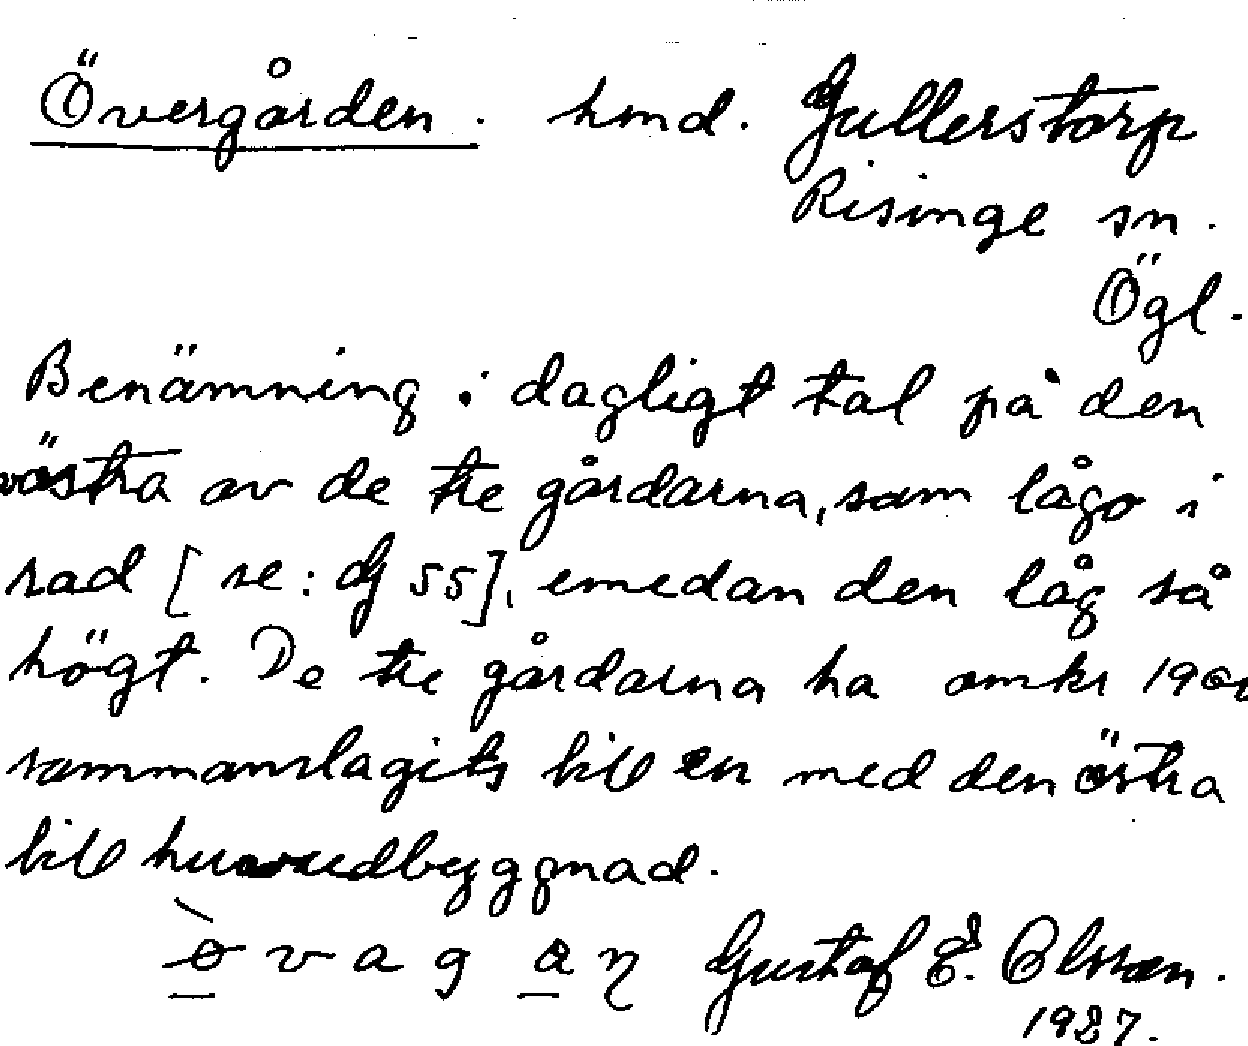 Övergården. hmd. Gullerstorp
Risinge sn.
Ögl.
Benämning i dagligt tal på den
västra av de tre gårdarna, som lågo i
rad [se: dg 55], emedan den låg så
högt. De tre gårdarna ha omkr 1900
sammanslagits till en med den östra
till huvudbyggnad.
Gustaf E. Olsson.
1927.